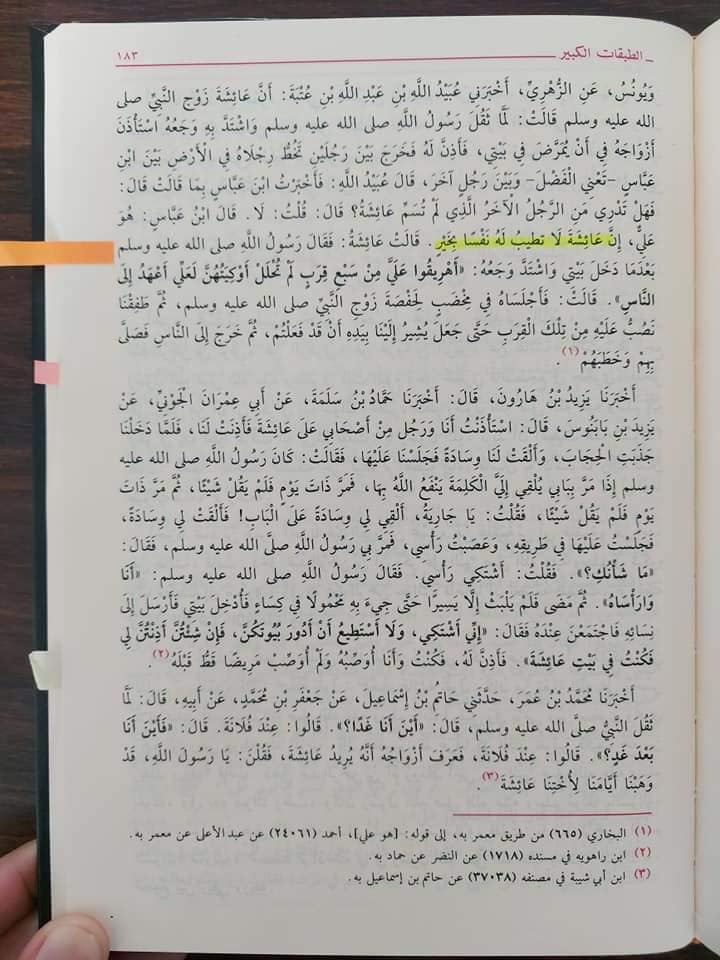 الطبقات الكبير ١٨٣
وَيُونُسُ، عَنِ الزُّهْرِيِّ، أَخْبَرَنِي عُبَيْدُ اللَّهِ بْنِ عَبْدِ اللَّهِ بْنِ عُتْبَةَ: أَنَّ عَائِشَةَ زَوْجَ النَّبِيِّ صلى
الله عليه وسلم قَالَتْ: لَمَّا ثَقُلَ رَسُولُ اللَّهِ صلى الله عليه وسلم وَاشْتَدَّ بِهِ وَجَعُهُ اسْتَأْذَنَ
أَزْوَاجَهُ فِي أَنْ يُمَرَّضَ فِي بَيْتِي، فَأَذِنَّ لَهُ فَخَرَجَ بَيْنَ رَجُلَيْنِ تَخُطُّ رِجْلَاهُ فِي الْأَرْضِ بَيْنَ ابْنِ
عَبَّاسٍ -تَعْنِي الْفَضْلَ- وَبَيْنَ رَجُلٍ آخَرَ، قَالَ عُبَيْدُ اللَّهِ: فَأَخْبَرْتُ ابْنَ عَبَّاسٍ بِمَا قَالَتْ قَالَ:
فَهَلْ تَدْرِي مَنِ الرَّجُلُ الْآخَرُ الَّذِي لَمْ تُسَمِّ عَائِشَةُ؟ قَالَ: قُلْتُ: لَا. قَالَ ابْنُ عَبَّاسٍ: هُوَ
عَلِيٌّ، إِنَّ عَائِشَةَ لَا تَطِيبُ لَهُ نَفْسًا بِخَيْرٍ. قَالَتْ عَائِشَةُ: فَقَالَ رَسُولُ اللَّهِ صلى الله عليه وسلم
بَعْدَمَا دَخَلَ بَيْتِي وَاشْتَدَّ وَجَعُهُ: «أَهْرِيقُوا عَلَيَّ مِنْ سَبْعِ قِرَبٍ لَمْ تُحْلَلْ أَوْكِيَتُهُنَّ لَعَلِّي أَعْهَدُ إِلَى
النَّاسِ». قَالَتْ: فَأَجْلَسْاهُ فِي مِخْضَبٍ لِحَفْصَةَ زَوْجِ النَّبِيِّ صلى الله عليه وسلم، ثُمَّ طَفِقْنَا
نَصُبُّ عَلَيْهِ مِنْ تِلْكَ الْقِرَبِ حَتَّى جَعَلَ يُشِيرُ إِلَيْنَا بِيَدِهِ أَنْ قَدْ فَعَلْتُمْ، ثُمَّ خَرَجَ إِلَى النَّاسِ فَصَلَّى
بِهِمْ وَخَطَبَهُمْ(١).
أَخْبَرَنَا يَزِيدُ بْنُ هَارُونَ، قَالَ: أَخْبَرَنَا حَمَّادُ بْنُ سَلَمَةَ، عَنْ أَبِي عِمْرَانَ الْجَوْنِيِّ، عَنْ
يَزِيدَ بْنِ بَابَنُوسَ، قَالَ: اسْتَأْذَنْتُ أَنَا وَرَجُلٌ مِنْ أَصْحَابِي عَلَى عَائِشَةَ فَأَذِنَتْ لَنَا، فَلَمَّا دَخَلْنَا
جَذَبَتِ الْحِجَابَ، وَأَلْقَتْ لَنَا وِسَادَةً فَجَلَسْنَا عَلَيْهَا، فَقَالَتْ: كَانَ رَسُولُ اللَّهِ صلى الله عليه
وسلم إِذَا مَرَّ بِبَابِي يُلْقِي إِلَيَّ الْكَلِمَةَ يَنْفَعُ اللَّهُ بِهَا، فَمَرَّ ذَاتَ يَوْمٍ فَلَمْ يَقُلْ شَيْئًا، ثُمَّ مَرَّ ذَاتَ
يَوْمٍ فَلَمْ يَقُلْ شَيْئًا، فَقُلْتُ: يَا جَارِيَةُ، أَلْقِي لِي وِسَادَةً عَلَى الْبَابِ! فَأَلْقَتْ لِي وِسَادَةً،
فَجَلَسْتُ عَلَيْهَا فِي طَرِيقِهِ، وَعَصَبْتُ رَأْسِي، فَمَرَّ بِي رَسُولُ اللَّهِ صلى الله عليه وسلم، فَقَالَ:
«مَا شَأْنُكِ؟». فَقُلْتُ: أَشْتَكِي رَأْسِي. فَقَالَ رَسُولُ اللَّهِ صلى الله عليه وسلم: «أَنَا
وَارَأْسَاهُ». ثُمَّ مَضَى فَلَمْ يَلْبَثْ إِلَّا يَسِيرًا حَتَّى جِيءَ بِهِ مَحْمُولًا فِي كِسَاءٍ فَأُدْخِلَ بَيْتِي فَأَرْسَلَ إِلَى
نِسَائِهِ فَاجْتَمَعْنَ عِنْدَهُ فَقَالَ: «إِنِّي أَشْتَكِي، وَلَا أَسْتَطِيعُ أَنْ أَدُورَ بُيُوتَكُنَّ، فَإِنْ شِئْتُنَّ أَذِنْتُنَّ لِي
فَكُنْتُ فِي بَيْتِ عَائِشَةَ». فَأَذِنَّ لَهُ، فَكُنْتُ وَأَنَا أُوَصِّبُهُ وَلَمْ أُوَصِّبْ مَرِيضًا قَطُّ قَبْلَهُ(٢).
أَخْبَرَنَا مُحَمَّدُ بْنُ عُمَرَ، حَدَّثَنِي حَاتِمُ بْنُ إِسْمَاعِيلَ، عَنْ جَعْفَرِ بْنِ مُحَمَّدٍ، عَنْ أَبِيهِ، قَالَ: لَمَّا
ثَقُلَ النَّبِيُّ صلى الله عليه وسلم، قَالَ: «أَيْنَ أَنَا غَدًا؟». قَالُوا: عِنْدَ فُلَانَةَ. قَالَ: «فَأَيْنَ أَنَا
بَعْدَ غَدٍ؟». قَالُوا: عِنْدَ فُلَانَةَ، فَعَرَفَ أَزْوَاجُهُ أَنَّهُ يُرِيدُ عَائِشَةَ، فَقُلْنَ: يَا رَسُولَ اللَّهِ، قَدْ
وَهَبْنَا أَيَّامَنَا لِأُخْتِنَا عَائِشَةَ(٣).
(١) البخاري (٦٦٥) من طريق معمر به، إلى قوله: [هو علي]، أحمد (٢٤٠٦١) عن عبد الأعلى عن معمر به.
(٢) ابن راهويه في مسنده (١٧١٨) عن النضر عن حماد به.
(٣) ابن أبي شيبة في مصنفه (٣٧٠٣٨) عن حاتم بن إسماعيل به.